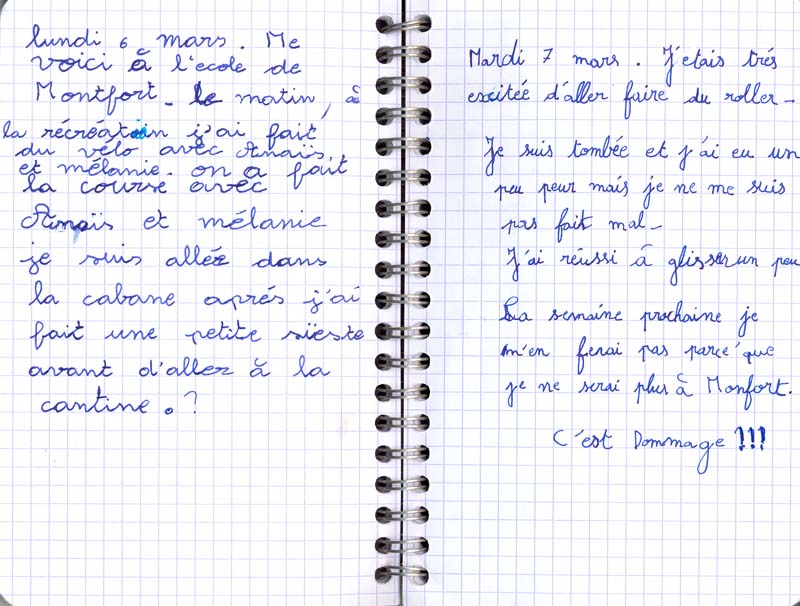 lundi 6 mars. Me
voici à l'ecole de
Montfort. le matin, à
la récréation j'ai fait
du vélo avec Anaïs,
et mélanie. on a fait
la course avec
Anaïs et mélanie
je suis allée dans
la cabane aprés j'ai
fait une petite sieste
avant d'aller à la
cantine. ?
Mardi 7 mars. J'étais trés
excitée d'aller faire du roller -
Je suis tombée et j'ai eu un
peu peur mais je ne me suis
pas fait mal -
J'ai réussi à glisser un peu
La semaine prochaine je
m'en ferai pas parce que
je ne serai plus à Monfort.
C'est Dommage !!!